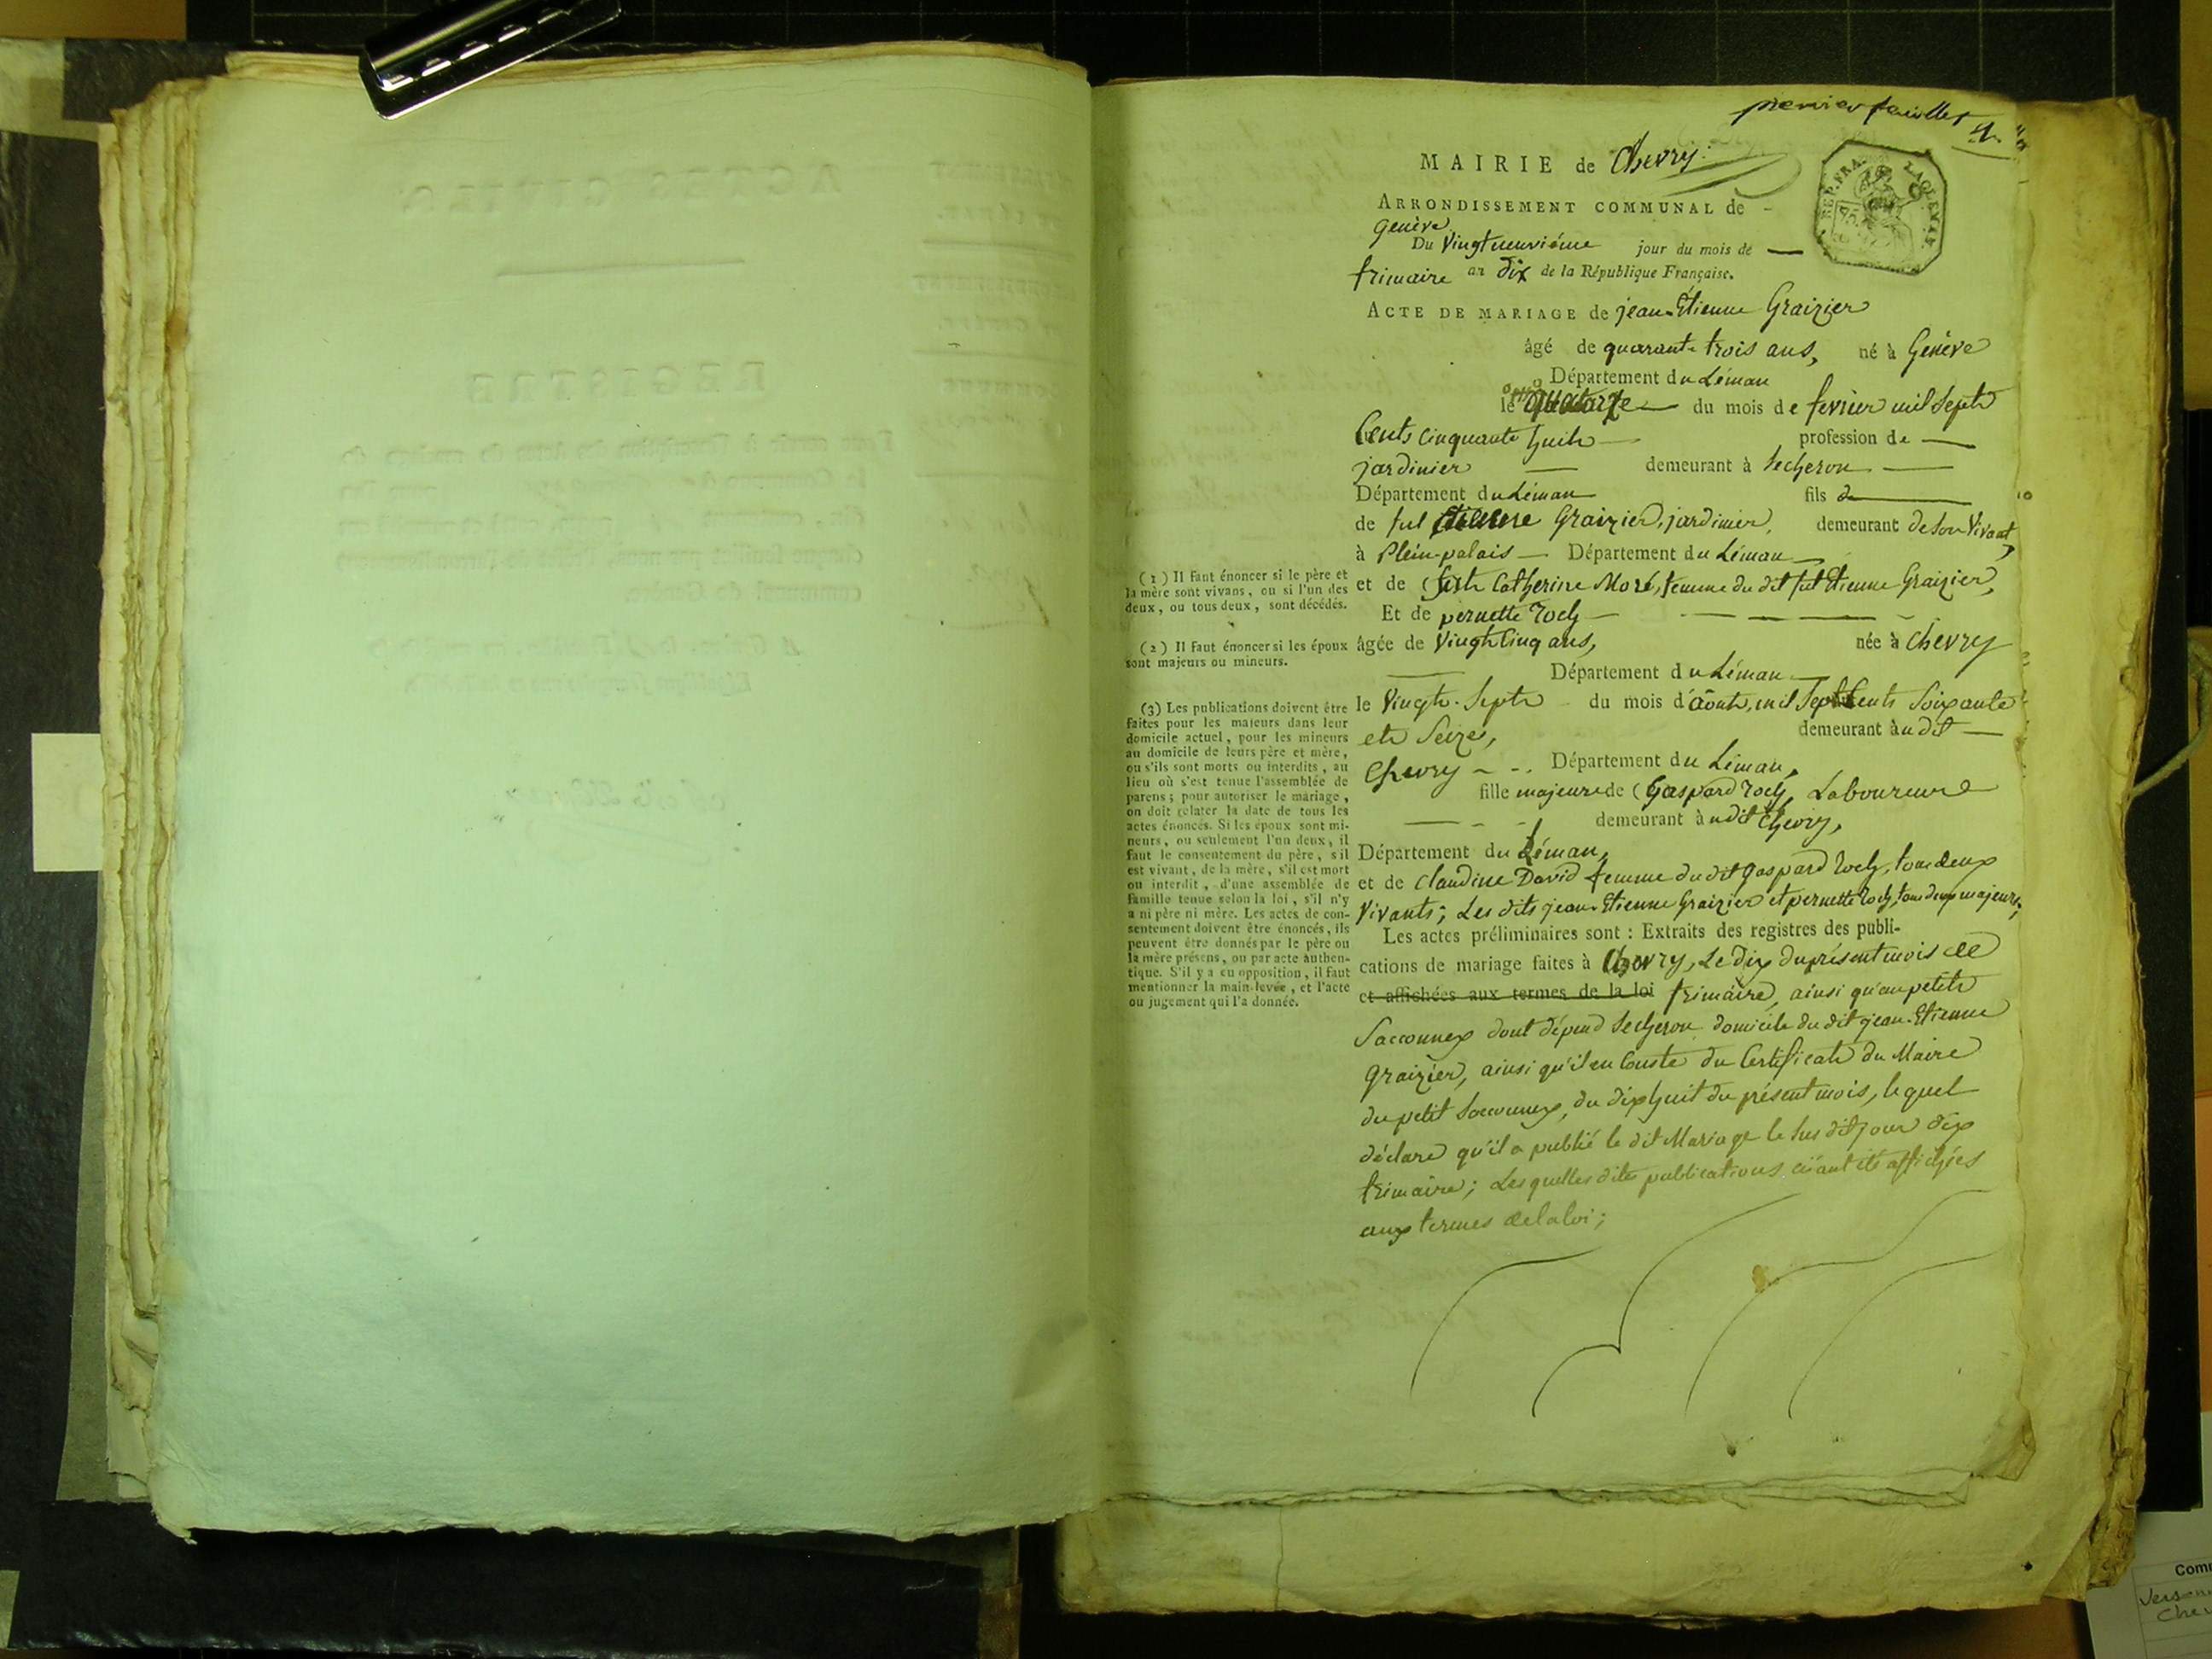 premier feuillet
1.
MAIRIE de Chevry.
REP. FRA.
ARRONDISSEMENT COMMUNAL de -
Genève.
Du Vingtneuviéme jour du mois de —
frimaire an dix de la République Française.
ACTE DE MARIAGE de jean-Étienne Graizier
âgé de quarante trois ans, né à Genève
Département du Léman
onze
le quatorze — du mois de fevrier mil Sept
Cents Cinquante huit — profession de —
jardinier — demeurant à Secheron —
Département du Léman fils de
de fut Etienne Graizier, jardinier, demeurant de son Vivant,
à Plein-palais — Département du Léman
et de fute Catherine Moré, femme du dit fut Etienne Graizier,
Et de pernette Roch
âgée de Vingt Cinq ans, née à Chevry
Département du Léman
le Vingt-Sept du mois d'Août, mil Sept Cents Soixante
et Seize, demeurant audit —
Chevry - - . Département du Léman,
fille majeure de (Gaspard Roch, Laboureur
demeurant audit Chevry,
Département du Léman,
et de Claudine David femme du dit Gaspard Roch, tous deux
Vivants; Les dits jean-Etienne Graizier et pernette Roch, tous deux majeurs;
Les actes préliminaires sont : Extraits des registres des publi-
cations de mariage faites à Chevry, Le dix du présent mois de
et affichées aux termes de la loi frimaire, ainsi qu'au petit
Sacconnex dont dépend Secheron domicile du dit jean-Etienne
Graizier, ainsi qu'il en Conste du Certificat du Maire
du petit Sacconnex, du dix huit du présent mois, lequel
déclare qu'il a publié le dit Mariage le sus dit jour dix
frimaire; Lesquelles dites publications aïant été affichées
aux termes de la loi;
(1) Il faut énoncer si le père et
la mère sont vivans, ou si l'un des
deux, ou tous deux, sont décédés.
(2) Il faut énoncer si les époux
sont majeurs ou mineurs.
(3) Les publications doivent être
faites pour les majeurs dans leur
domicile actuel, pour les mineurs
au domicile de leurs père et mère,
ou s'ils sont morts ou interdits, au
lieu où s'est tenue l'assemblée de
parens; pour autoriser le mariage,
on doit relater la date de tous les
actes énoncés. Si les époux sont mi-
neurs, ou seulement l'un deux, il
faut le consentement du père, s'il
est vivant, de la mère, s'il est mort
ou interdit, d'une assemblée de
famille tenue selon la loi, s'il n'y
a ni père ni mère. Les actes de con-
sentement doivent être énoncés, ils
peuvent être donnés par le père ou
la mère présens, ou par acte authen-
tique. S'il y a eu opposition, il faut
mentionner la main-levée, et l'acte
ou jugement qui l'a donnée.
ACTES CIVILS
REGISTRE